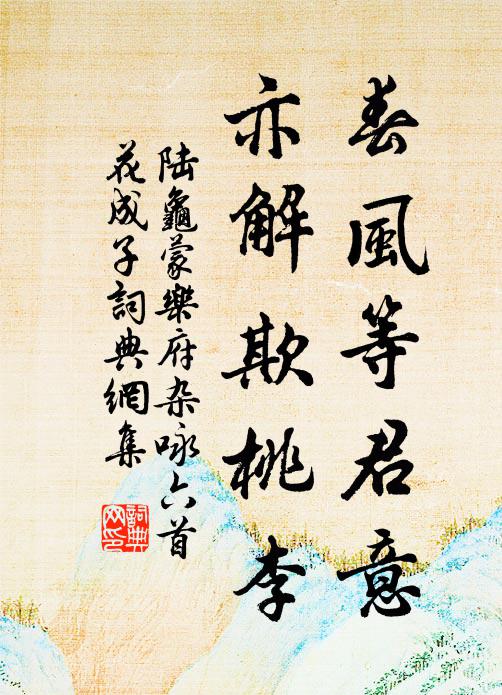 春風等君意
亦解欺桃李
陆龜蒙樂府杂咏六首
花成子詞典網集
詞典
网印